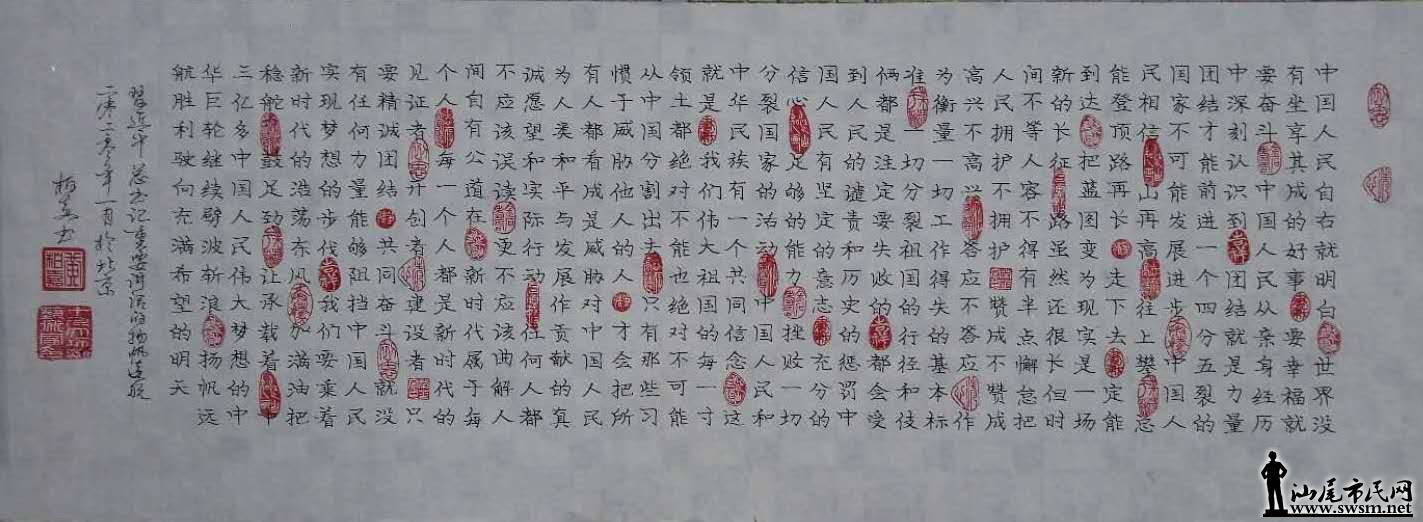 中国人民自古就明白世界没
有坐享其成的好事要幸福就
要奋斗中国人民从亲身经历
中深刻认识到团结就是力量
团结才能前进一个四分五裂的
国家不可能发展进步中国人
民相信山再高往上攀总
能登顶路再长走下去定能
到达把蓝图变为现实是一场
新的长征路虽然还很长但时
间不等人容不得有半点懈怠把
人民拥护不拥护赞成不赞成
高兴不高兴答应不答应作
为衡量一切工作得失的基本标
准一切分裂祖国的行径和伎
俩都是注定要失败的都会受
到人民的谴责和历史的惩罚中
国人民有坚定的意志充分的
信心足够的能力挫败一切
分裂国家的活动中国人民和
中华民族有一个共同信念这
就是我们伟大祖国的每一寸
领土都绝对不能也绝对不可能
从中国分割出去只有那些习
惯于威胁他人的人才会把所
有人都看成是威胁对中国人民
为人类和平与发展作贡献的真
诚愿望和实际行动任何人都
不应该误读更不应该曲解人
间自有公道在新时代属于每
个人每一个人都是新时代的
见证者开创者建设者只
要精诚团结共同奋斗就没
有任何力量能够阻挡中国人民
实现梦想的步伐我们要乘着
新时代的浩荡东风加满油把
稳舵鼓足劲让承载着十
三亿多中国人民伟大梦想的中
华巨轮继续劈波斩浪扬帆远
航胜利驶向充满希望的明天
习近平总书记重要讲话的扬帆远航
年一月於北京
书
汕尾市民网
www.swsm.net